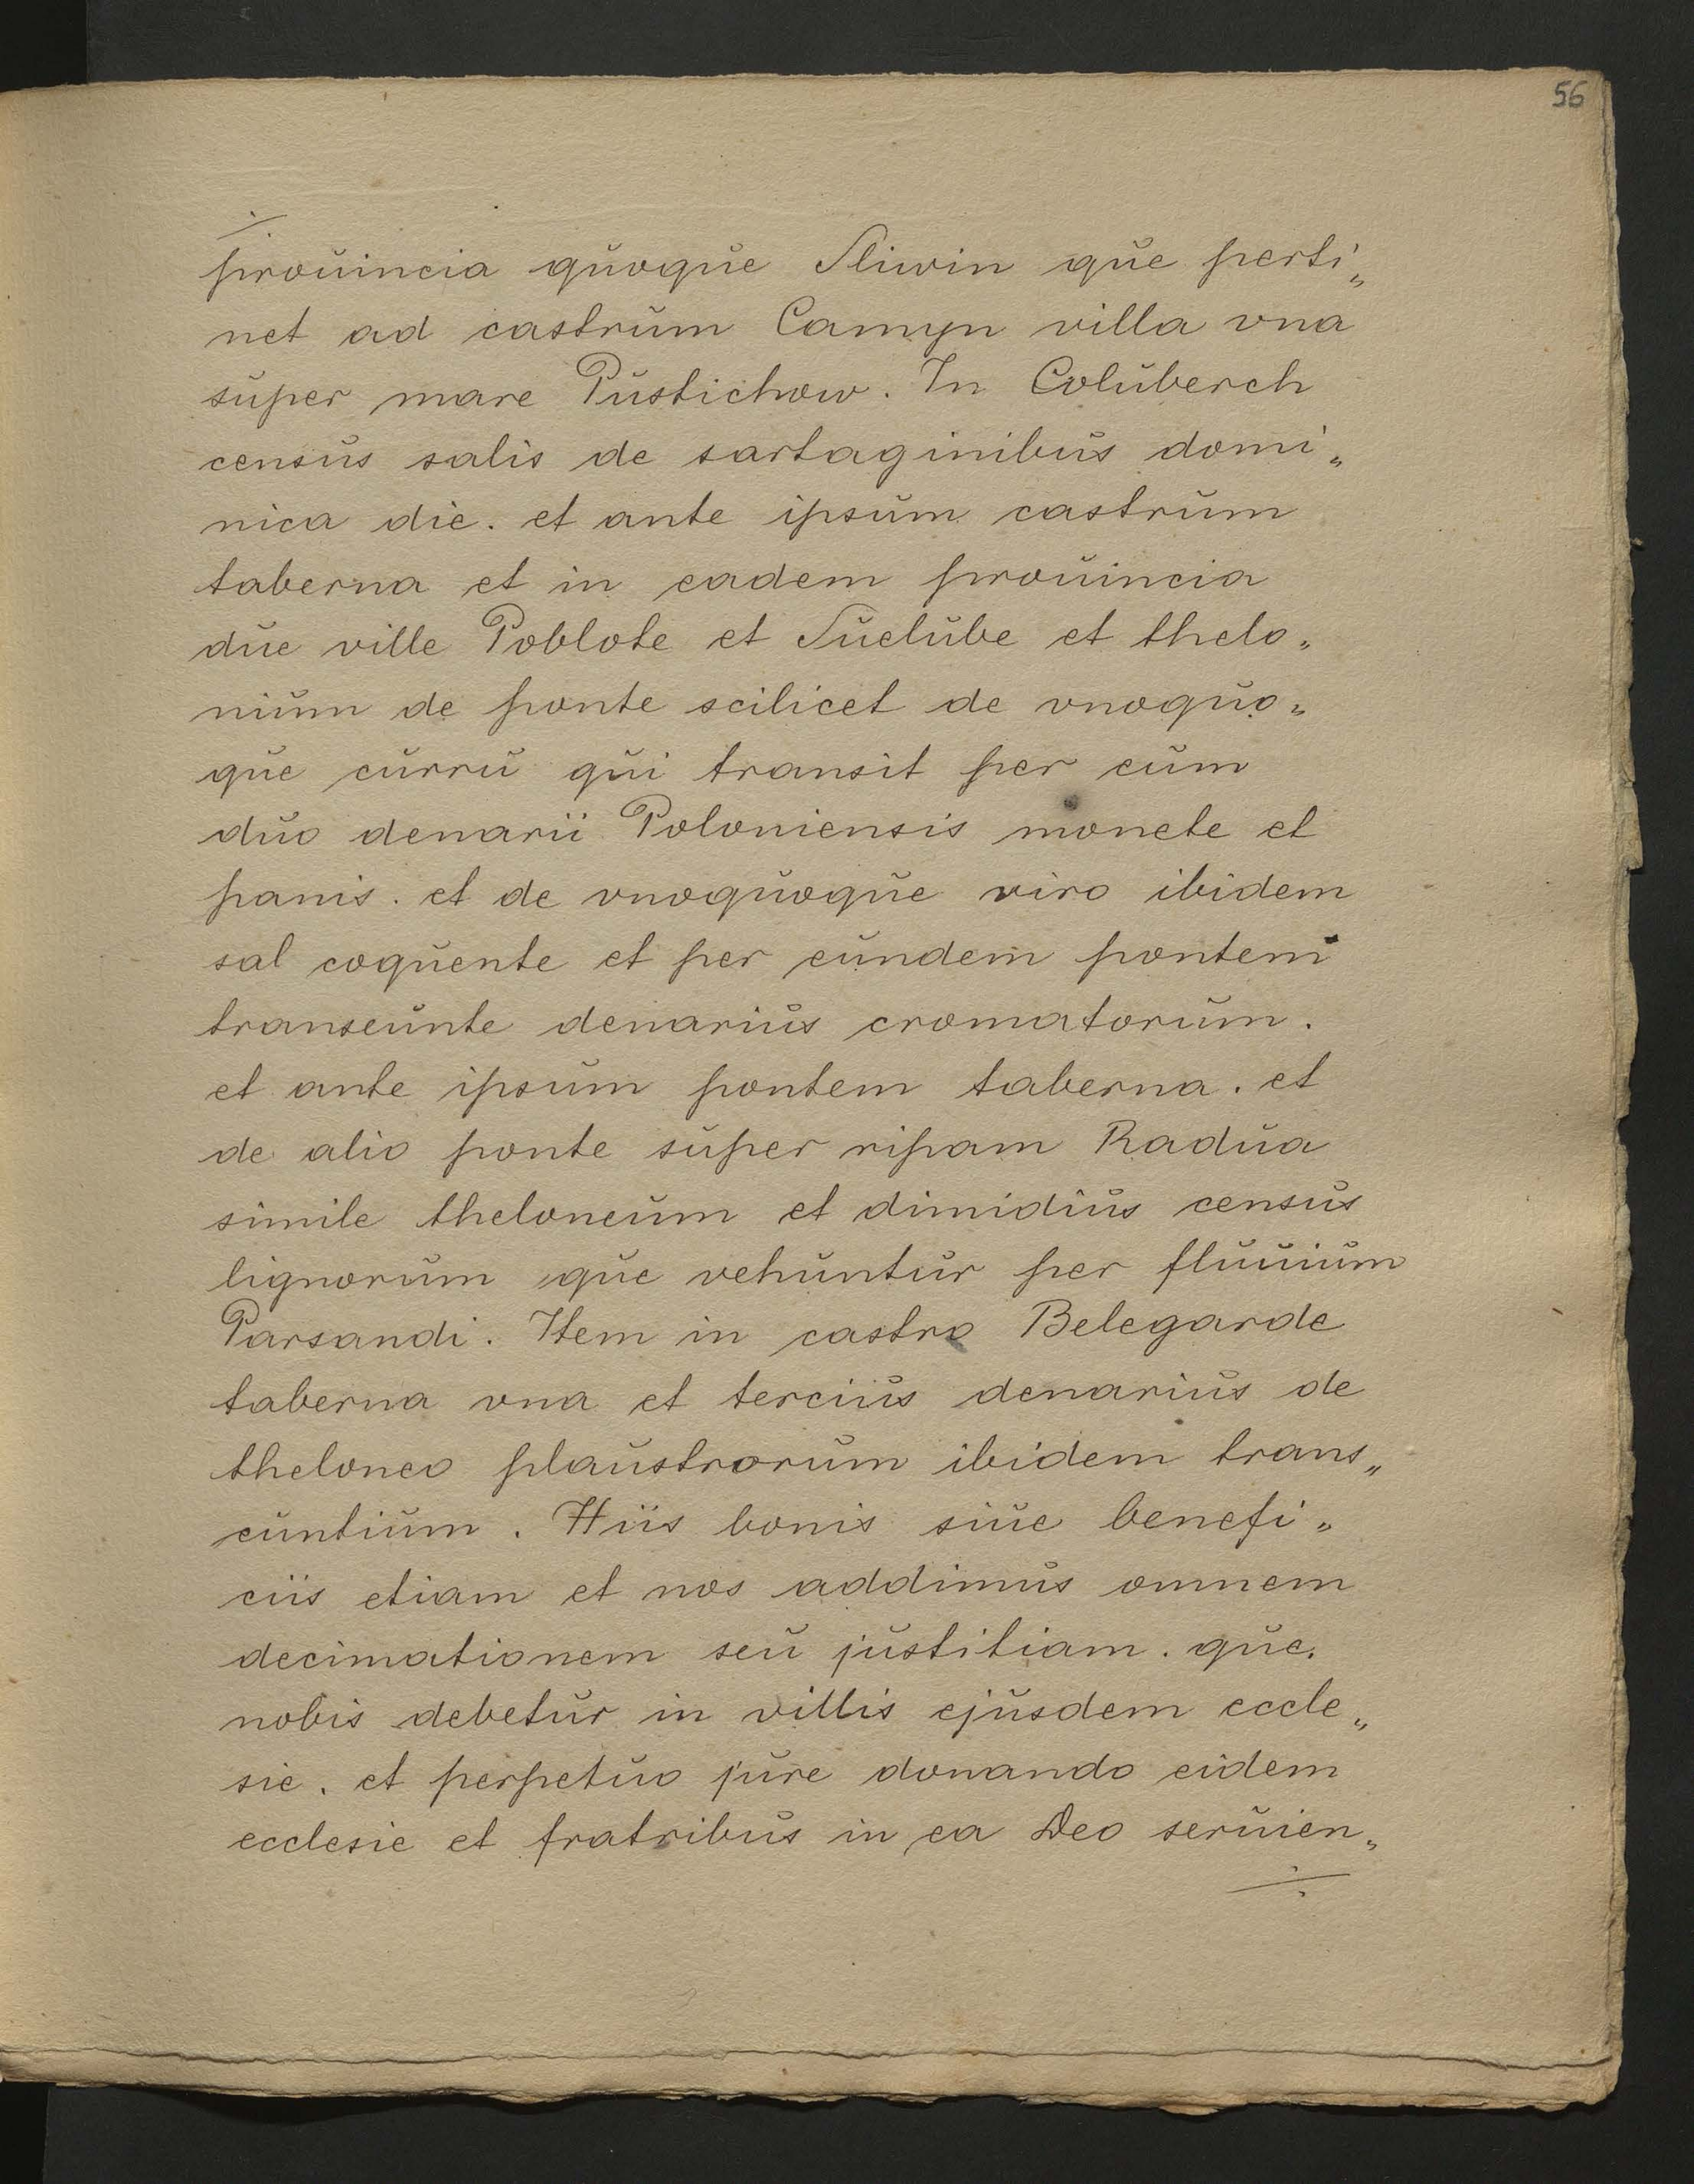 56
prouincia quoque Sliwin que perti„
net ad castrum Camyn villa vna
super mare Pustichow. In Coluberch
census salis de sartaginibus domi„
nica die. et ante ipsum castrum
taberna et in eadem prouincia
due ville Poblote et Suelube et thelo„
nium de ponte scilicet de vnoquo„
que curru qui transit per eum
duo denarii Poloniensis monete et
panis. et de vnoquoque viro ibidem
sal coquente et per eundem pontem
transeunte denarius cromatorum.
et ante ipsum pontem taberna. et
de alio ponte super ripam Radua
simile theloneum et dimidius census
lignorum que vehuntur per fluuium
Parsandi. Item in castro Belegarde
taberna vna et tercius denarius de
theloneo plaustrorum ibidem trans„
euntium. Hiis bonis siue benefi„
ciis etiam et nos addimus omnem
decimationem seu justitiam. que.
nobis debetur in villis ejusdem eccle„
sie. et perpetuo jure donando eidem
ecclesie et fratribus in ea Deo seruien„